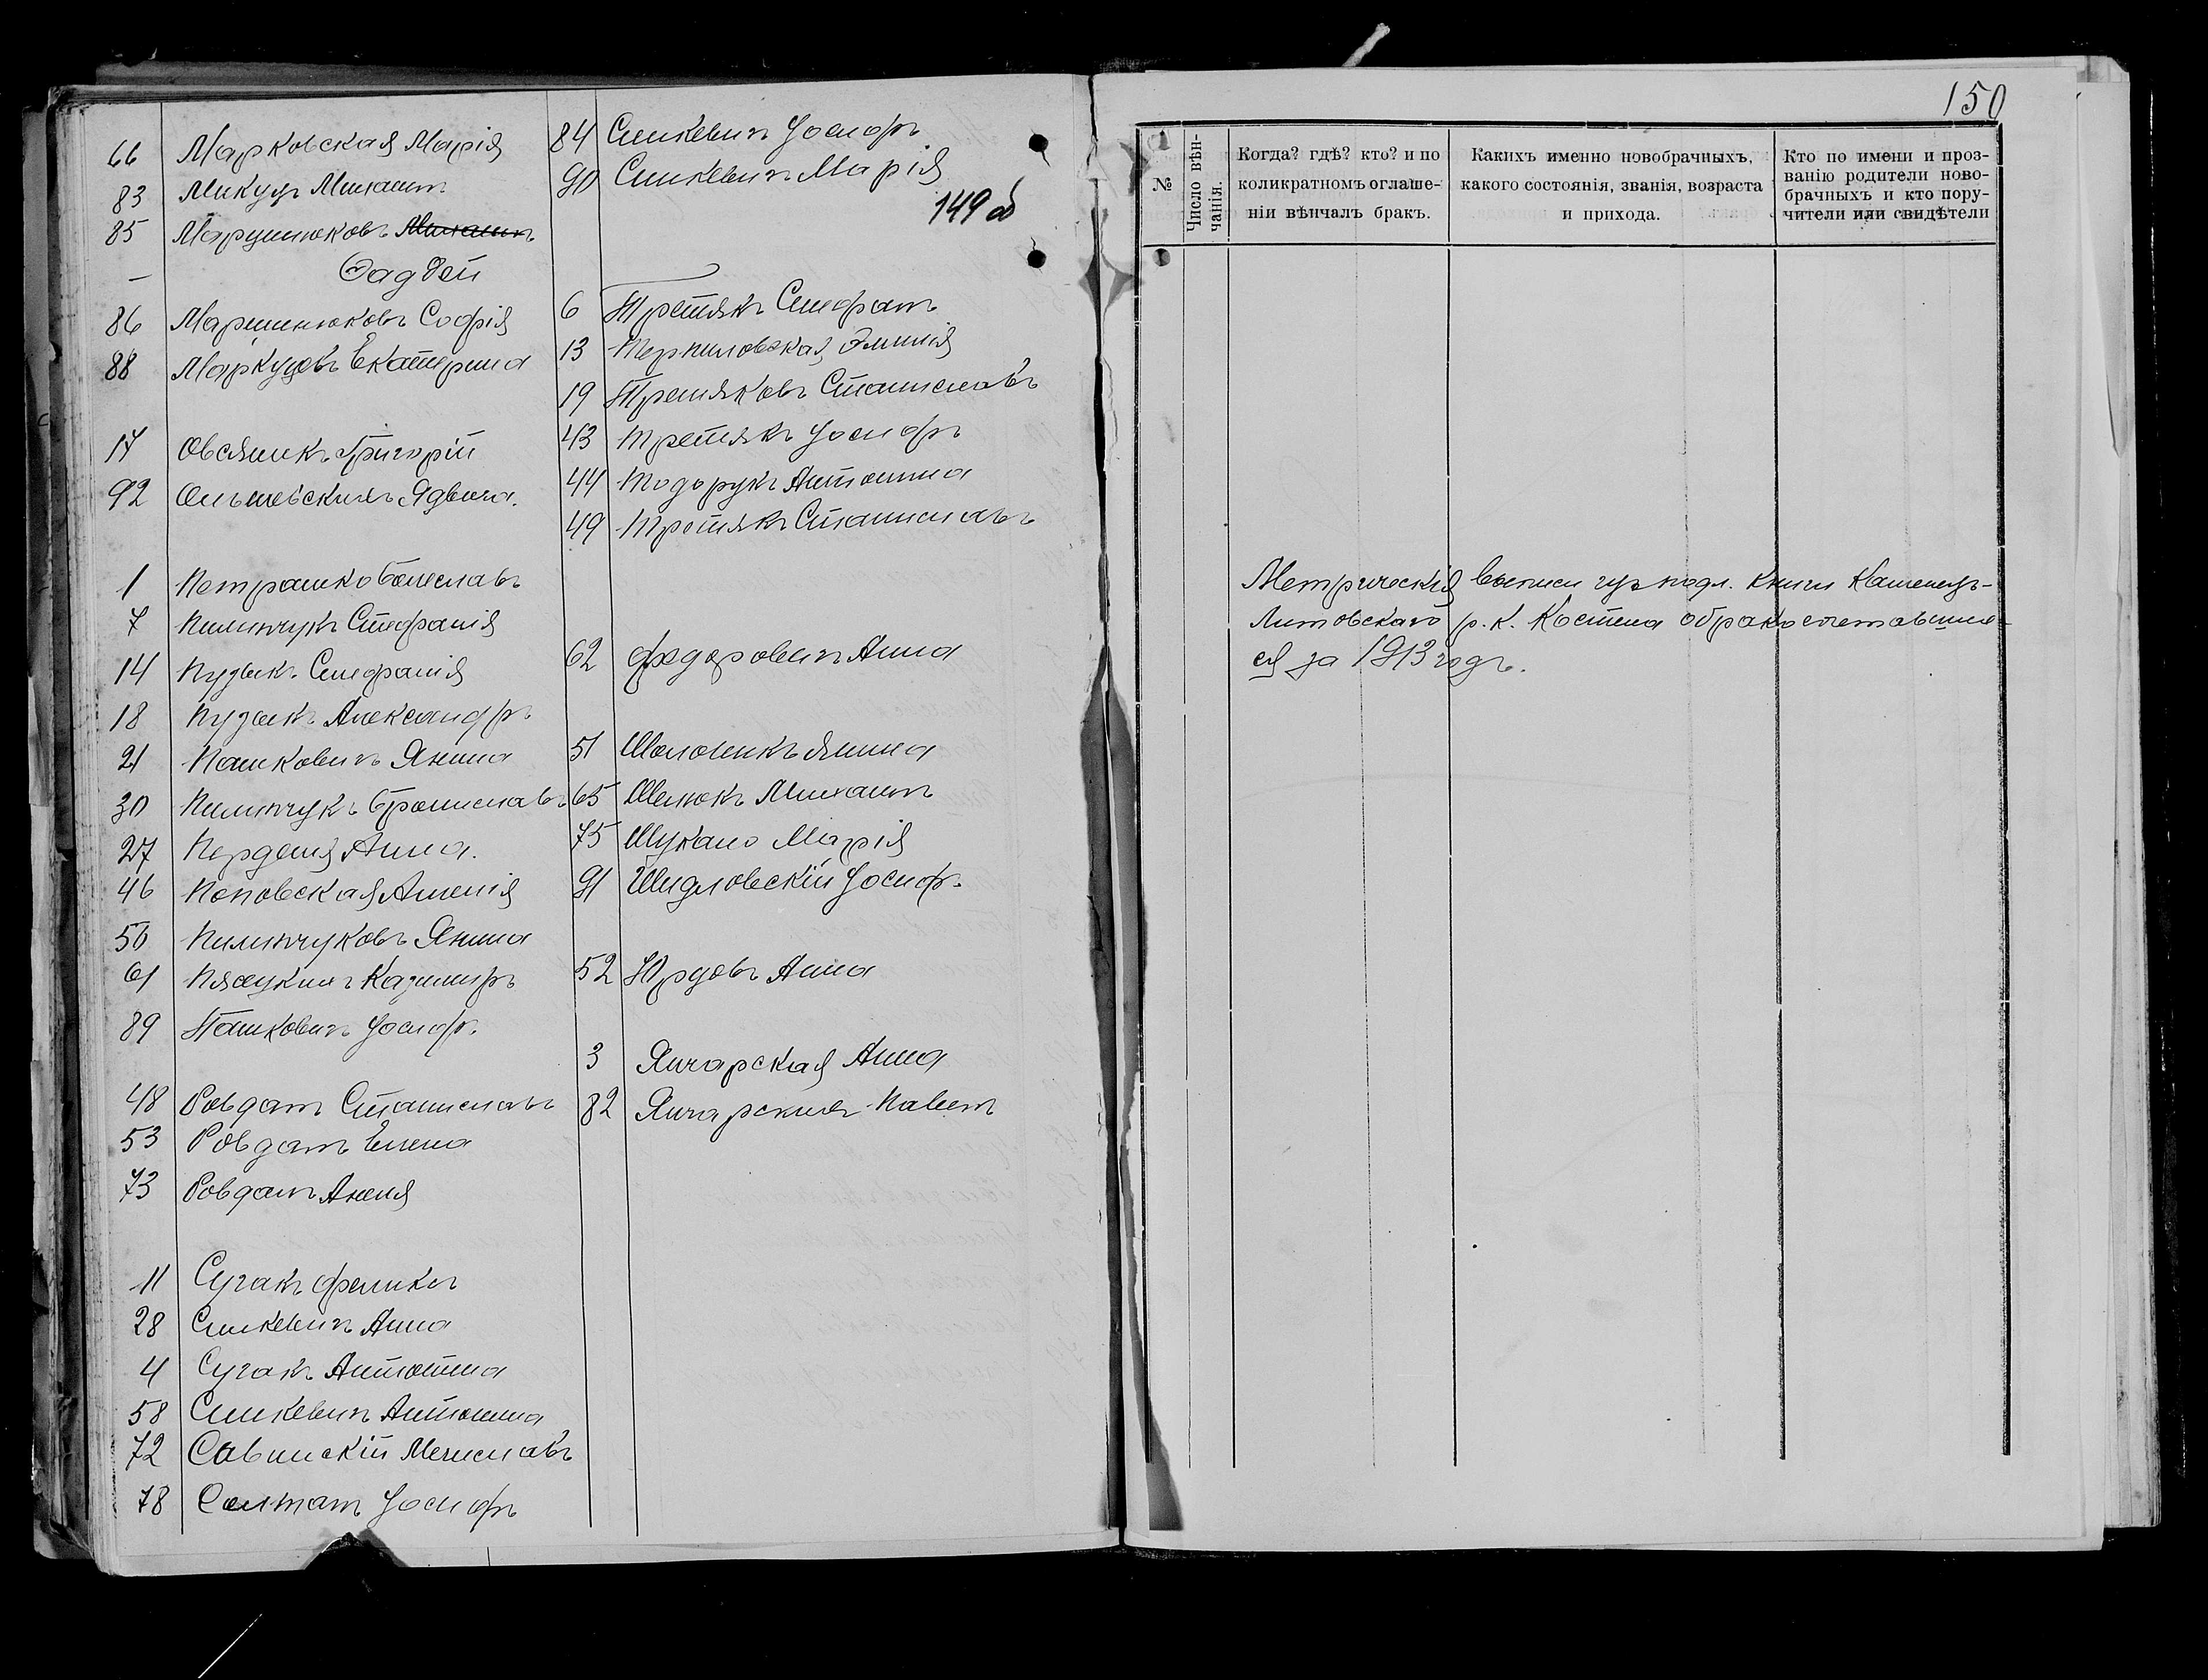 66 Марковская Марія
83 Микуц Михаилъ
85 Марушюковъ Михаилъ
— Фаддей
86 Мартинюковъ Софія
88 Маркуцовъ Екатерина
17 Овсяникъ Григорій
92 Ольшевскихъ Ядвига.
1 Петрашко Болеславъ
7 Пилипчукъ Стефанія
14 Пузыкъ Стефанія
18 Пузыкъ Александръ
21 Пашкевичъ Янина
30 Пилипчукъ Брониславъ
27 Перденя Анна.
46 Поповская Аненія
50 Пилипчуковъ Янина
61 Пясецкихъ Казимиръ
89 Пашкевичъ Іосифъ.
48 Ровдатъ Станиславъ
53 Ровдатъ Елена
73 Ровдатъ Анеля
11 Сугакъ Феликсъ
28 Синкевичъ Анна
4 Сугакъ Антонина
58 Синкевичъ Антонина
72 Савинскій Мечиславъ
78 Солтатъ Іосифъ
84 Синкевичъ Іосифъ
90 Синкевичъ Марія
149 об
6 Третякъ Стефанъ
13 Терпиловская Эмилія
19 Третяковъ Станиславъ
43 Третякъ Іосифъ
44 Тодорукъ Антонина
49 Третякъ Станиславъ
62 Федоровичъ Анна
51 Шоломикъ Янина
65 Шелюкъ Михаилъ
75 Шукало Марія
91 Шидловскій Іосифъ.
52 Юрдовъ Анна
3 Янчарская Анна
82 Янчарскихъ Павелъ
150
№
Число вѣн-
чанія.
Когда? гдѣ? кто? и по
коликратномъ оглаше-
ніи вѣнчалъ бракъ.
Какихъ именно новобрачныхъ,
какого состоянія, званія, возраста
и прихода.
Кто по имени и проз-
ванію родители ново-
брачныхъ и кто пору-
чители или свидѣтели
Метрическія выписи изъ подл. книги Каменецъ-
Литовскаго р. к. Костела о бракосочетавших-
ся за 1913 годъ.